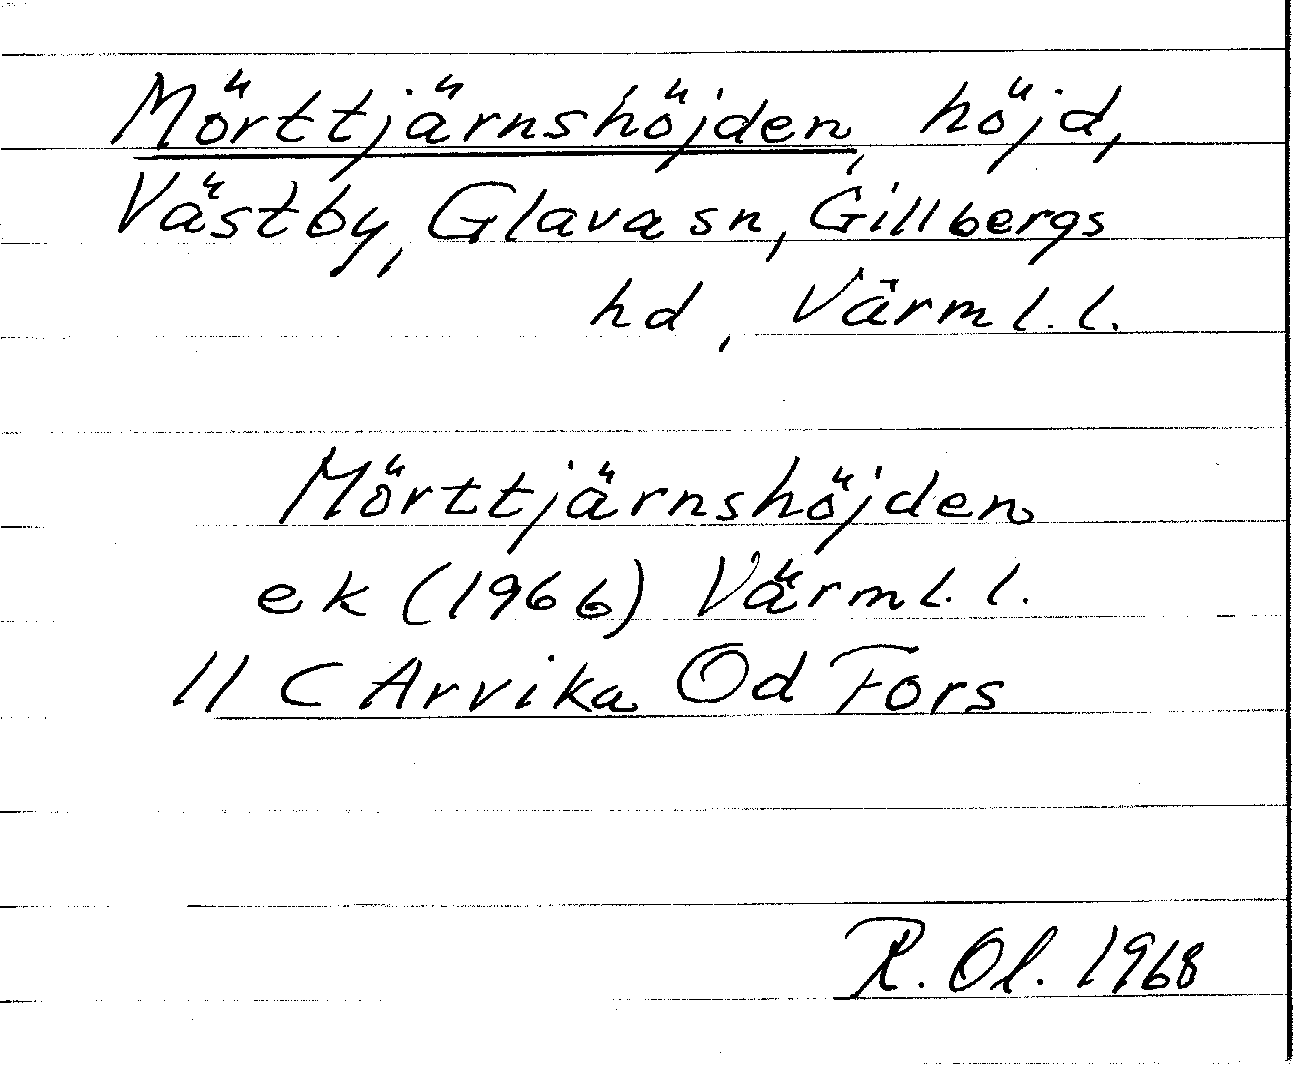 Mörttjärnshöjden, höjd,
Västby, Glava sn, Gillbergs
hd, Värml. l.
Mörttjärnshöjden
ek (1966) Värml. l.
11 C Arvika Od Fors
R. Ol. 1968